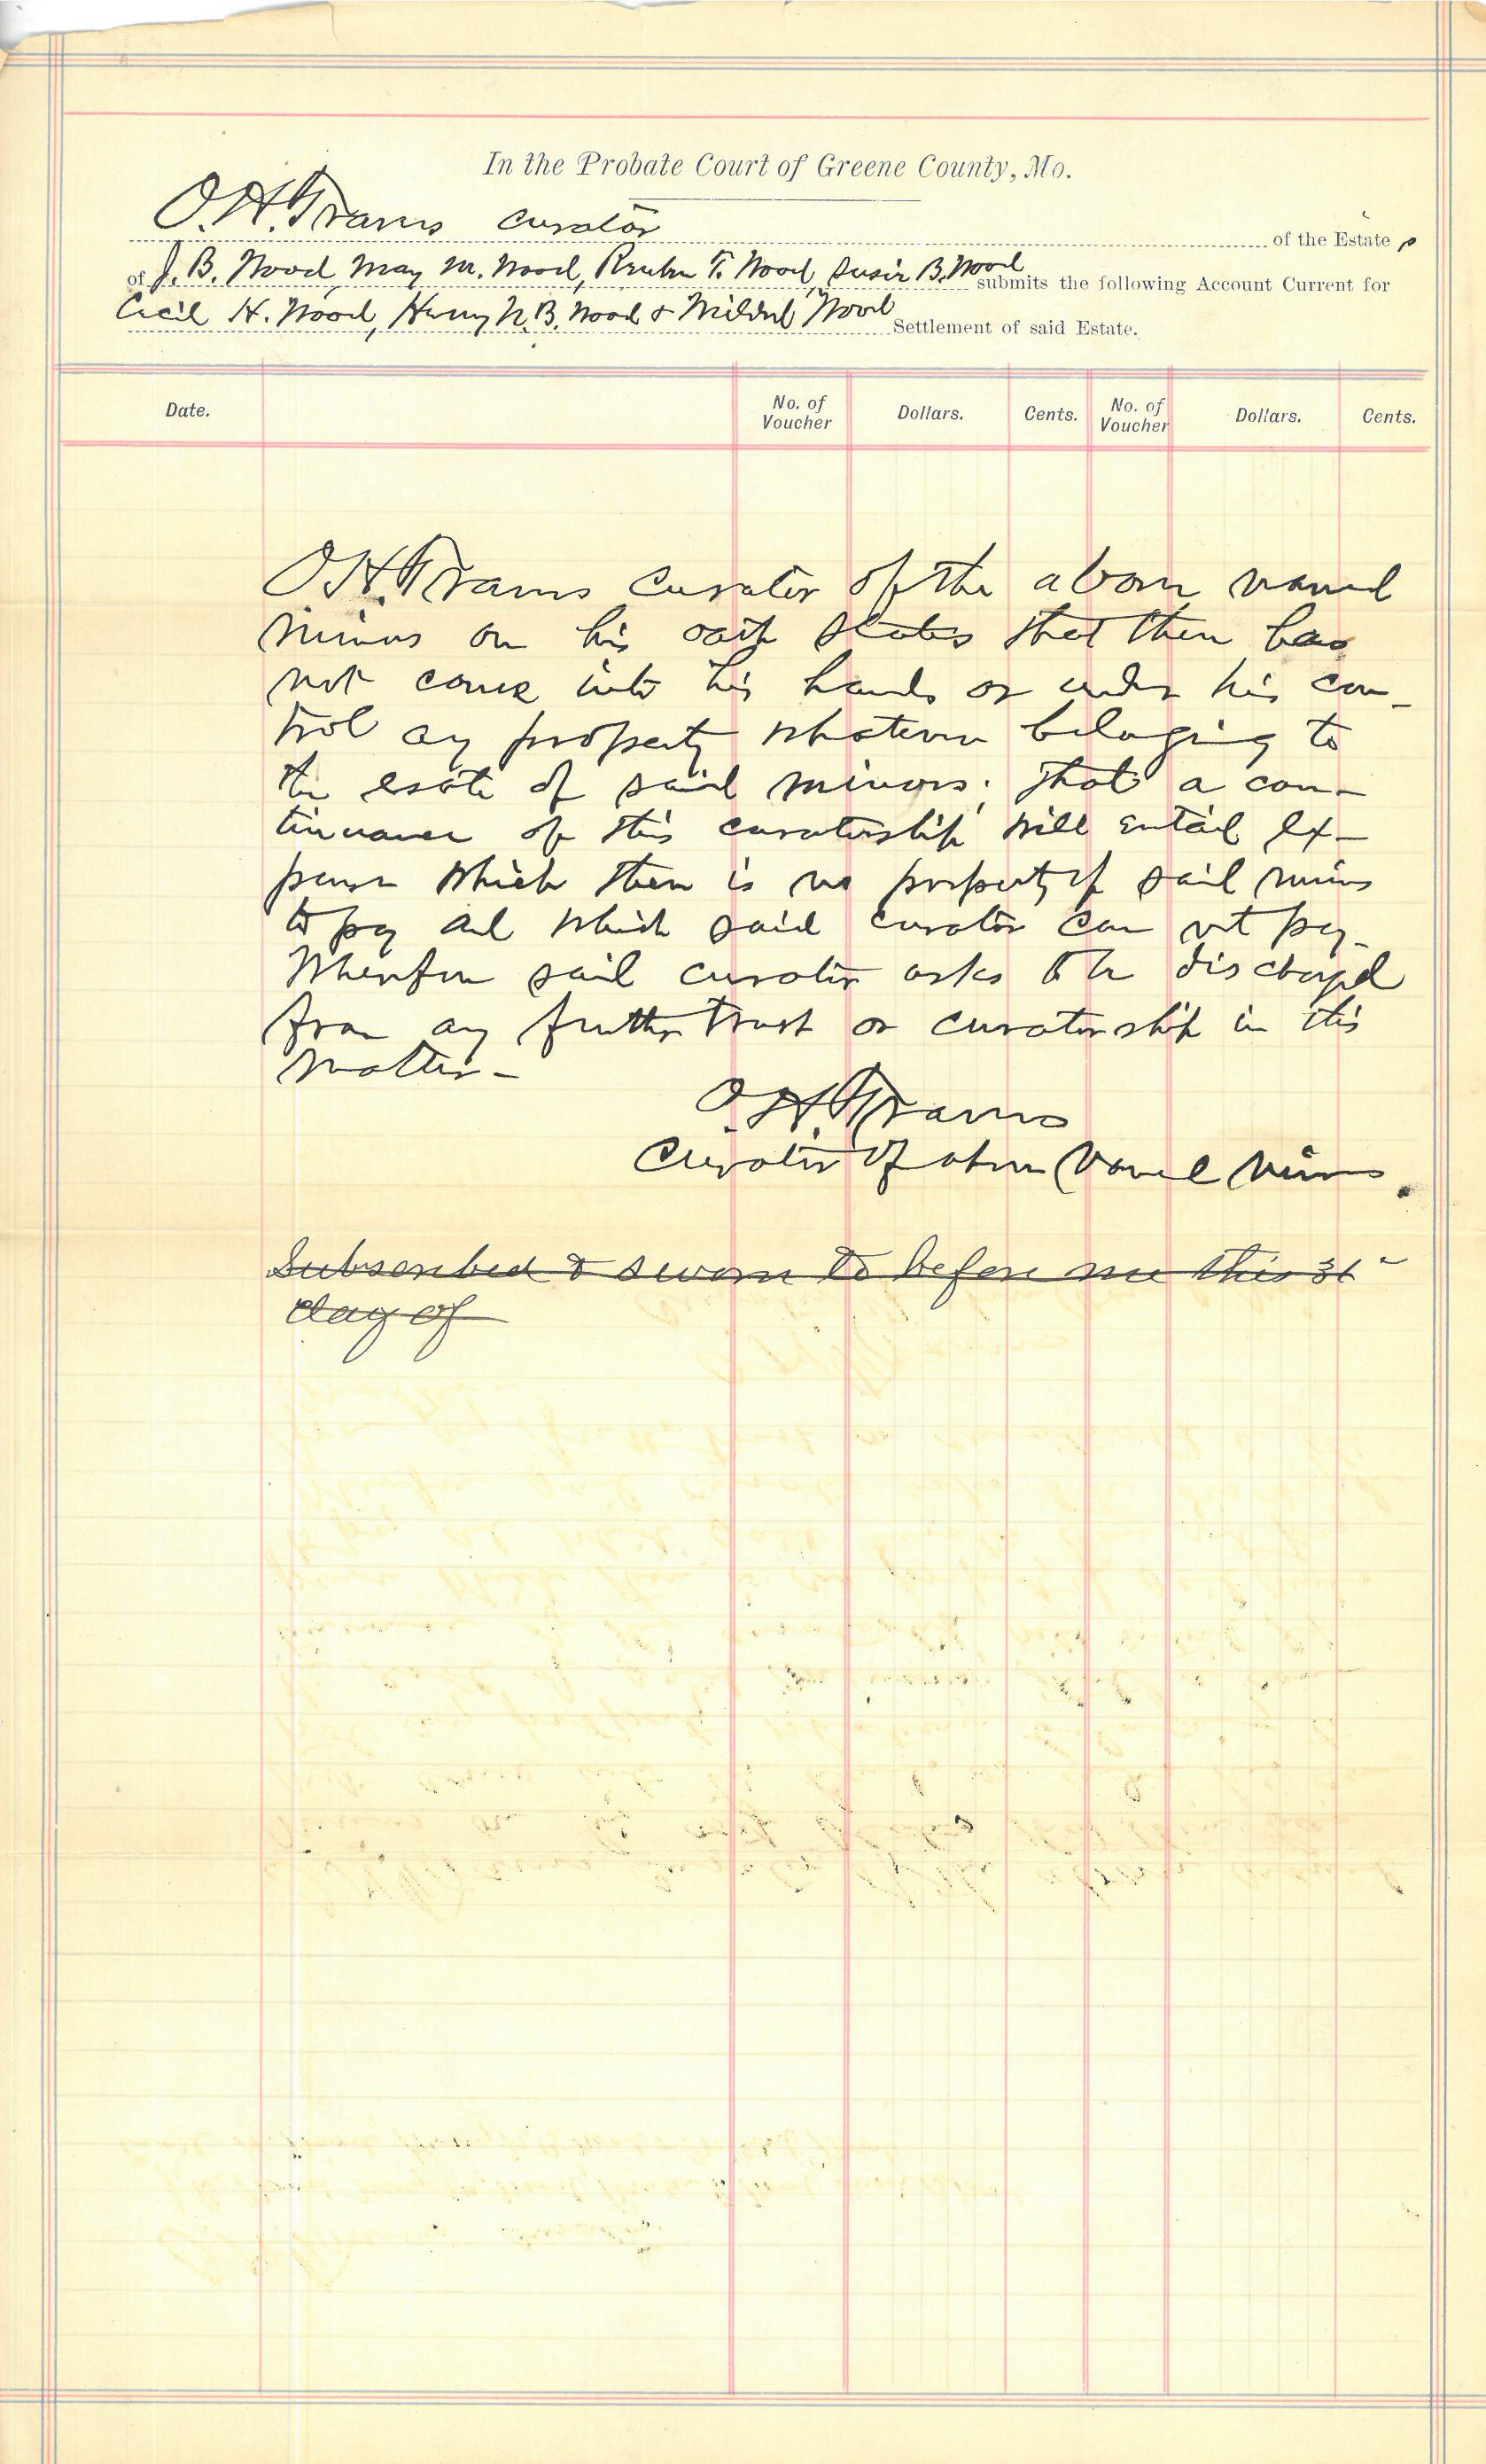 In the Probate Court of Greene County, Mo.
O.H. Travis curator of the Estate s
of J. B. Wood, May M. Wood, Reuben T. Wood, Susie B. Wood submits the following Account Current for
Cecil H. Wood, Henry N.B. Wood & Mildred Wood Settlement of said Estate.
Date. No. of Voucher Dollars. Cents. No. of Voucher Dollars. Cents.
O.H. Travis curator of the above named
minors on his oath states that there has
not come into his hands or under his con-
trol any property whatever belonging to
the esate of said minors; that a con-
tinuance of this curatorship will entail ex-
pense which there is no property of said minors
to pay and which said curator can not pay.
Wherefore said curator asks to be discharged
from any further trust or curatorship in this
matter-
O.H. Travis
Curator of above named minors.
Subscribed & sworn to before me this 31"
day of